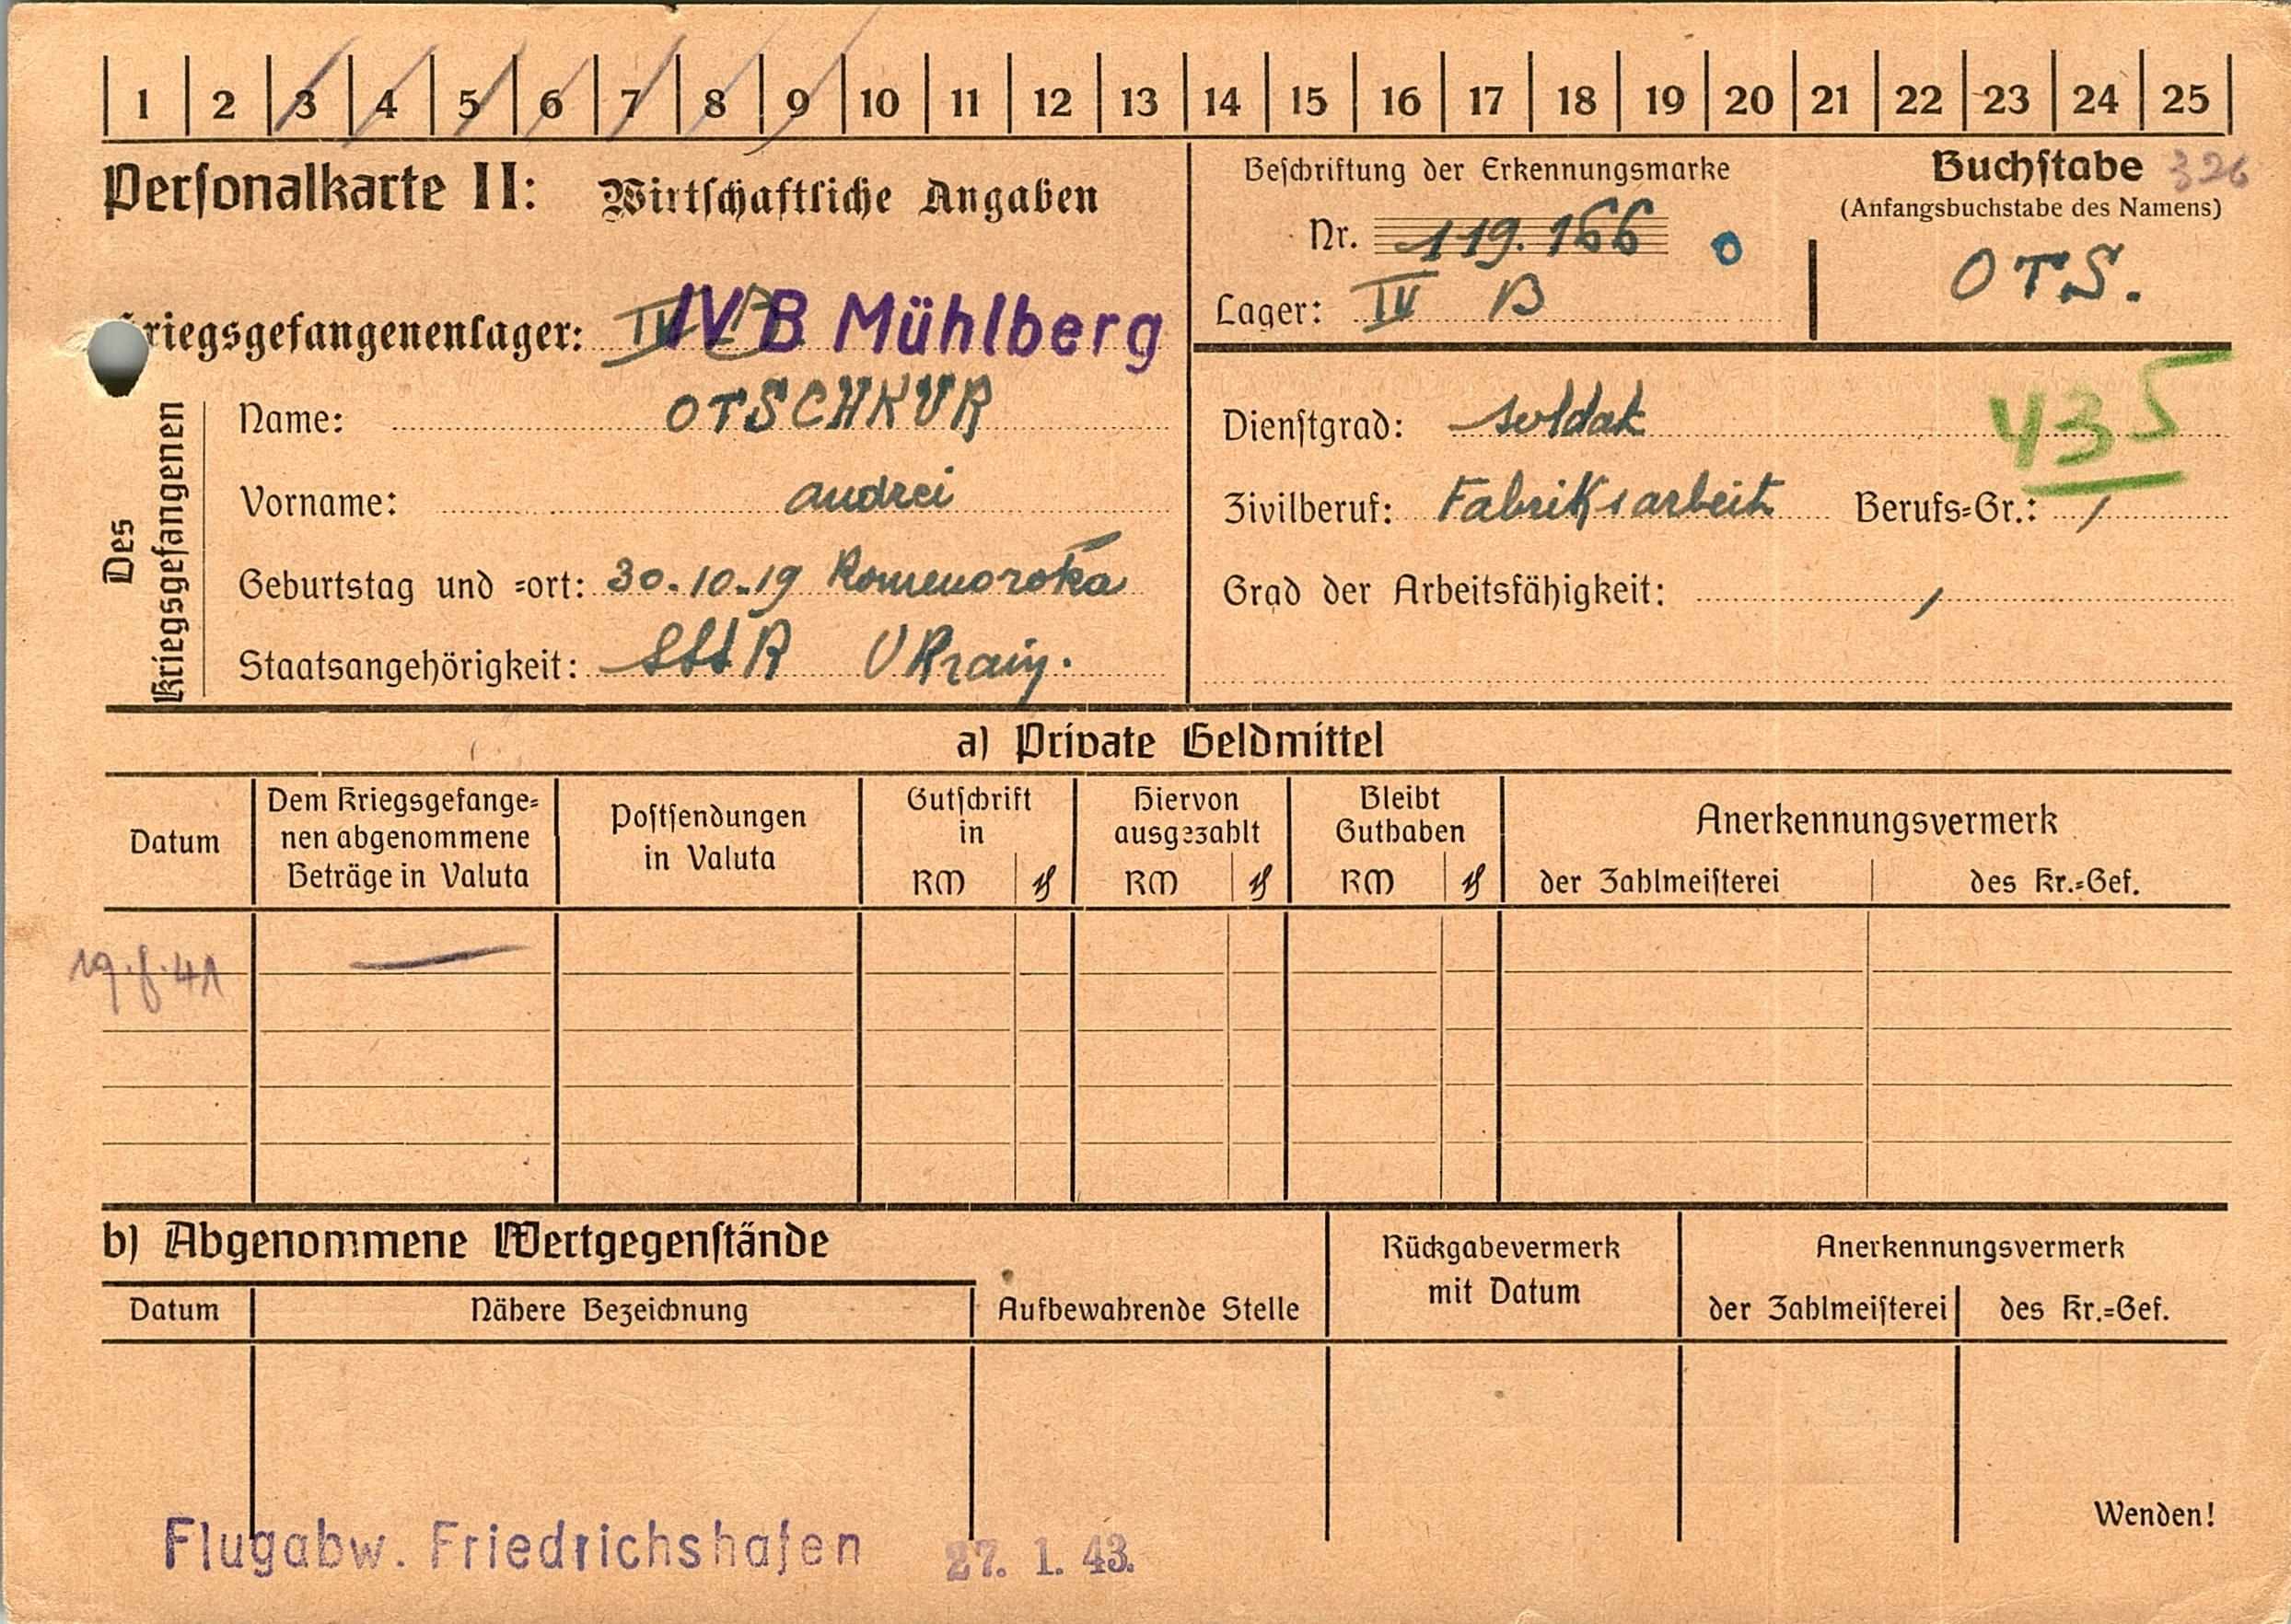 1 2 3 4 5 6 7 8 9 10 11 12 13 14 15 16 17 18 19 20 21 22 23 24 25
Personalkarte II: Wirtschaftliche Angaben
Beschriftung der Erkennungsmarke
Nr. 119.166 o
Lager: IV B
Buchstabe 326
(Anfangsbuchstabe des Namens)
OTS.
Kriegsgefangenenlager: IV B Mühlberg
Des Kriegsgefangenen
Name: OTSCHKUR
Vorname: andrei
Geburtstag und =ort: 30.10.19
Staatsangehörigkeit: SSSR Ukrain.
Dienstgrad: soldat
435
Zivilberuf: Fabriksarbeit Berufs=Gr.: /
Grad der Arbeitsfähigkeit: /
a) Private Geldmittel
Datum
Dem Kriegsgefange=
nen abgenommene
Beträge in Valuta
Postsendungen
in Valuta
Gutschrift
in
RM ₰
Hiervon
ausgezahlt
RM ₰
Bleibt
Guthaben
RM ₰
Anerkennungsvermerk
der Zahlmeisterei des Kr.=Gef.
19.8.41 —
b) Abgenommene Wertgegenstände
Datum Nähere Bezeichnung Aufbewahrende Stelle
Rückgabevermerk
mit Datum
Anerkennungsvermerk
der Zahlmeisterei des Kr.=Gef.
Wenden!
Flugabw. Friedrichshafen 27. 1. 43.